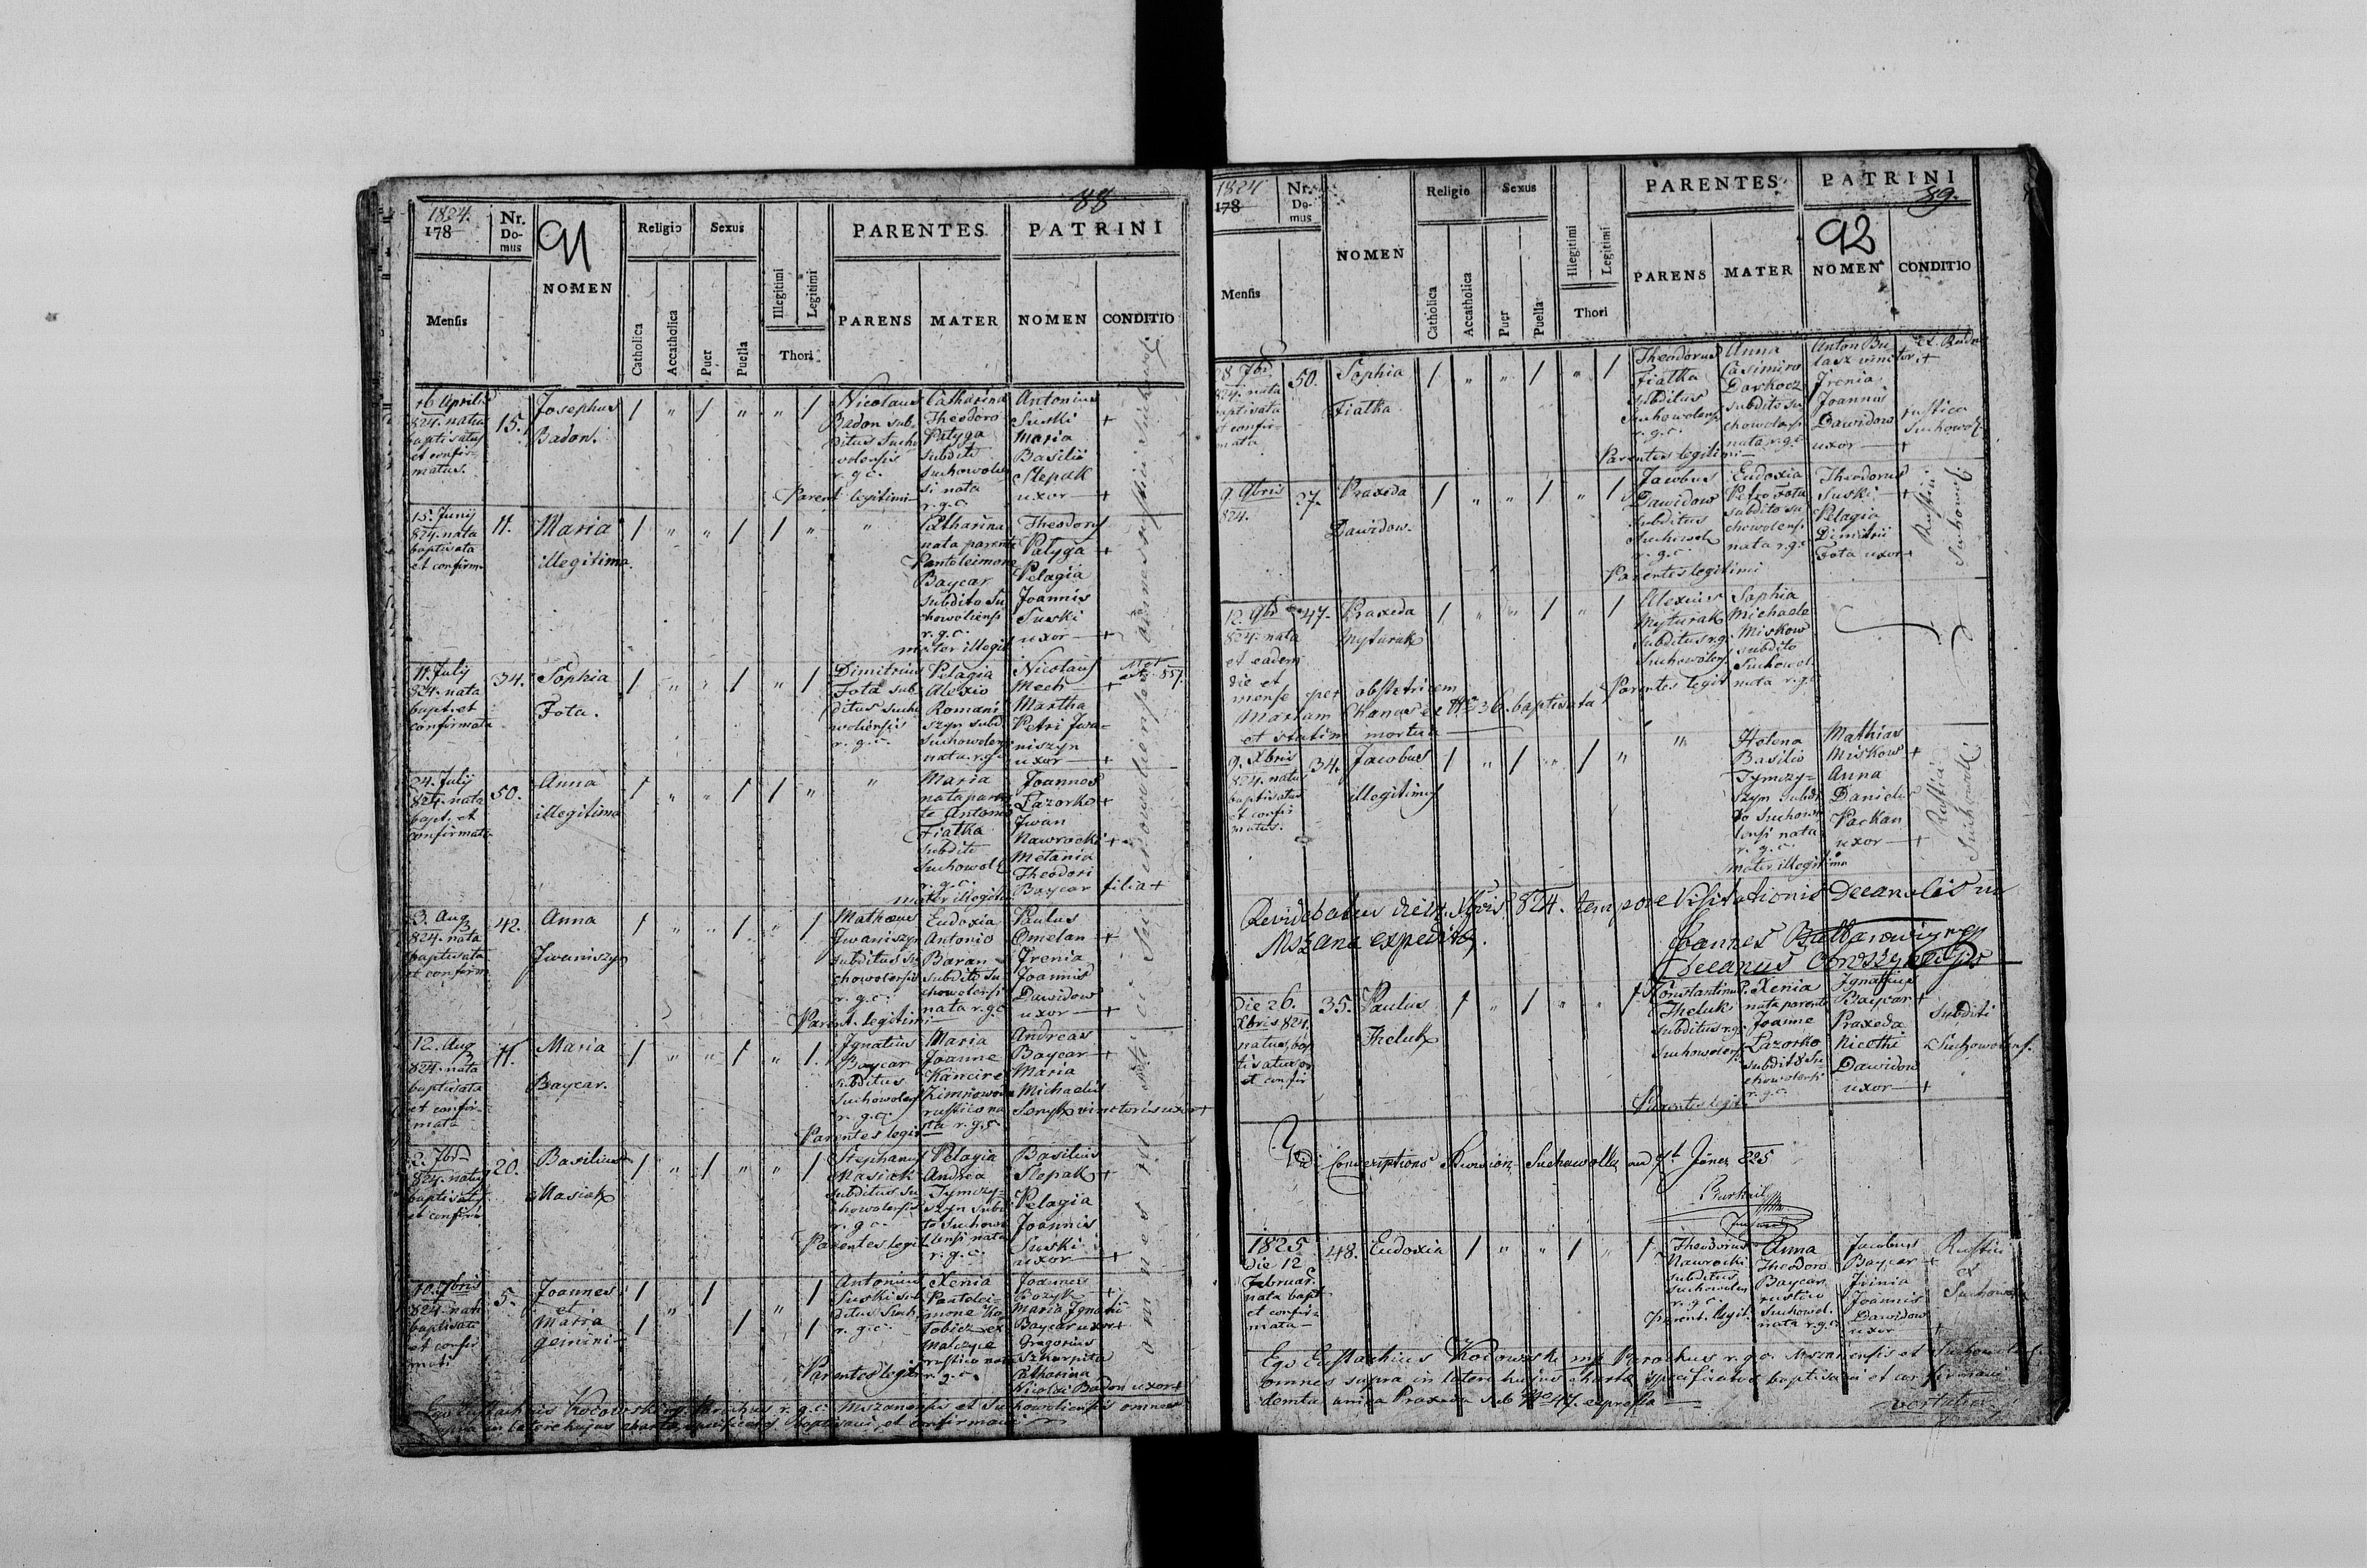 88
1824.
178
Nr.
Do-
mus
91
NOMEN
Religio
Sexus
PARENTES
PATRINI
Mensis
Catholica
Accatholica
Puer
Puella
Illegitimi
Legitimi
Thori
PARENS
MATER
NOMEN
CONDITIO
16 Aprilis
824. natus
baptisatus
et confir-
matus.
15.
Josephus
Badon.
Nicolaus
Badon sub-
ditus Sucho
wolensis
r. g. c.
Parent legitimi
Catharina
Theodoro
Patyga
subdito
Suchowolen
si nata
r. g. c.
Antonius
Suski
Maria
Basilii
Slepak
uxor +
15. Junij
824. nata
baptisata
et confirm
11.
Maria
illegitima.
Catharina
nata parente
Panteleimone
Baycar
subdito Su
chowoliensi
r. g. c.
mater illegit
Theodorus
Patyga +
Pelagia
Joannis
Suski
uxor +
11. July
824. nata
bapt. et
confirmata
34.
Sophia
Fota.
Dimitrius
Fota sub
ditus Sucho
woliensis
r. g. c.
Pelagia
Alexio
Romani
szyn subd
Suchowolensi
nata. r.g.c
Nicolaus
Mech +
Martha
Petri Iwa-
niszyn
uxor +
24. July
824. nata
bapt. et
confirmata
50.
Anna
illegitima
Maria
nata paren
te Antonio
Fiatka
subdito
Suchowol
r. g. c.
mater illegit
Joannes
Lazorko +
Iwan
Nawrocki +
Melania
Theodori
Baycar filia +
3. Aug
824. nata
baptisata
et confirm
42.
Anna
Iwaniszyn
Matheus
Iwaniszyn
subditus Su
chowolensis
r. g. c.
Parent. legitimi
Eudoxia
Antonio
Baran
subdito Su
chowolensi
nata r.g.c
Paulus
Omelan +
Irenia
Joannis
Dawidow
uxor +
12. Aug
824. nata
baptisata
et confir-
mata
11.
Maria
Baycar.
Ignatius
Baycar
subditus
Suchowolens
r. g. c.
Parentes legit
Maria
Joanne
rustico na
ta r. g. c
Andreas
Baycar +
Maria
Michaelis
uxor +
2. 7br
824. natus
baptisatus
et confirm
20.
Basilius
Masiak
Stephanus
Masiak
subditus Su
chowolensis
r. g. c.
Parentes legit
Pelagia
Andrea
Tymczy-
szyn subdi
to Suchowo
lensi nata
r. g. c.
Basilius
Slepak +
Pelagia
Joannis
Suski
uxor +
10. 7bris
824. nati
baptisati
et confir
mati
5.
Joannes
et
Maria
gemini
Antonius
Suski sub
ditus Such
r. g. c.
Parentes legit
Xenia
Pantolei-
mone
rustico nata
r. g. c.
Joannes
Bozyk +
Maria Ignatii
Baycar uxor +
Gregorius
Szkarpita
Catharina
Nicolai Badon uxor +
Ego Eustachius Kocowski mp Parochus r. g. c. Mszanensis et Suchowoliensis omnes
supra in latere hujus charta specificatos baptisavi et confirmavi
89.
1824
178
Nr.
Do-
mus
NOMEN
Religio
Sexus
PARENTES
PATRINI
92
Mensis
Catholica
Accatholica
Puer
Puella
Illegitimi
Legitimi
Thori
PARENS
MATER
NOMEN
CONDITIO
28 7br
824. nata
baptisata
et confir-
mata
50.
Sophia
Fiatka
Theodorus
Fiatka
subditus
Suchowolensis
r. g. c.
Parentes legitimi
Anna
Casimiro
Darkocz
subdito Su
chowolensi
nata r.g.c
Anton Bu
Irenia
Joannis
Dawidow
uxor +
rustica
Suchowol
9. 9bris
824.
27.
Praxeda
Dawidow.
Jacobus
Dawidow
subditus
Suchowol
r. g. c.
Parentes legitimi
Eudoxia
Petro Fota
subdito Su
chowolensi
nata r.g.c
Theodorus
Suski +
Pelagia
Dimitrii
Fota uxor +
Rustici
Suchowol
12. 9br
824. nata
et eadem
die et
mense per obstetricem
Mariam ex Nro 36. baptisata
et statim mortua
47.
Praxeda
Myturak
Alexius
Myturak
subditus r.g.
Suchowolens
Parentes legit
Sophia
Michaele
Miskow
subdito
Suchowol
nata r. g. c
9. Xbris
824. natus
baptisatus
et confir
matus.
34.
Jacobus
illegitimus
Helena
Basilio
Tymczy-
szyn subdi
to Suchowo
lensi nata
r. g. c.
mater illegitima
Mathias
Miskow +
Anna
Danielis
Packan
uxor +
Rustici
Suchowoll
824. tempore Visitationis Decanalis in
Mszana expedita.
Joannes
Decanus
Die 26.
Xbris 824.
natus, bap
tisatus
et confir
35.
Paulus
Theluk
Konstantinus
Theluk
subditus r.g.
Suchowolens
Parentes legit
Xenia
nata parente
Joanne
Lazorko
subdito Su-
chowolensi
r. g. c.
Ignatius
Baycar +
Praxeda
Nicethi
Dawidow
uxor +
Subditi
Suchowolens.
Conscriptions Revision Suchowolla 825
1825
die 12
Februar.
nata bapt
et confir-
mata
48.
Eudoxia
Theodorus
Nawrocki
subditus
Suchowolen
r. g. c.
Parent. legit.
Anna
Theodoro
Baycar
rustico
Suchowol.
nata r.g.c
Jacobus
Baycar +
Irinia
Joannis
Dawidow
uxor +
Rustici
ex
Suchowola
Ego Eustachius Kocowski mp Parochus r. g. c. Mszanensis et Suchowolensis
omnes supra in latere hujus charta specificatos baptisavi et confirmavi
demta unica Praxeda sub Nro 47. expressa
vertatur